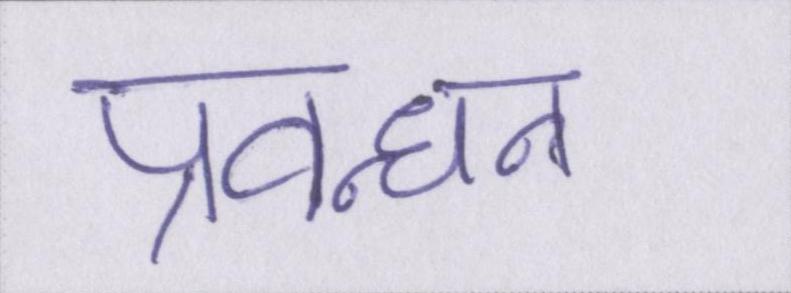 प्रवन्धन